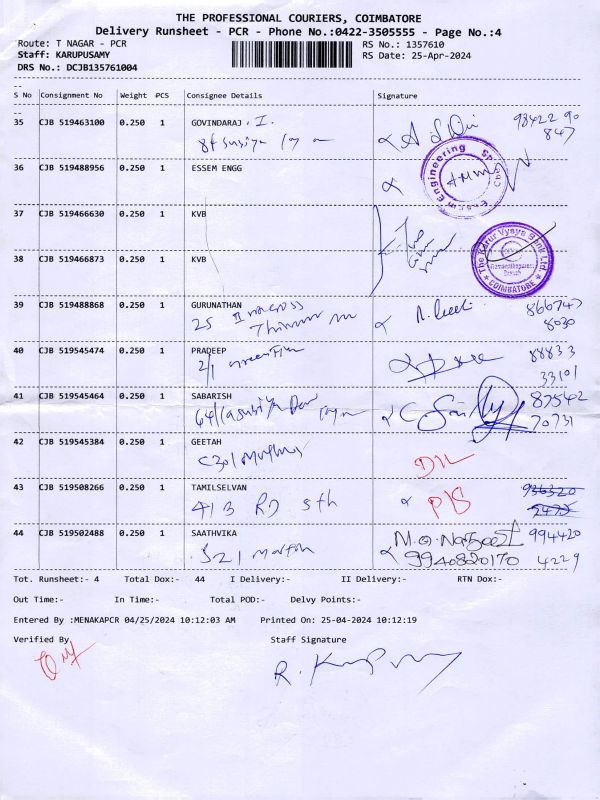 THE PROFESSIONAL COURIERS, COIMBATORE
Delivery Runsheet - PCR - Phone No.:0422-3505555 - Page No.:4
Route: T NAGAR - PCR RS No.: 1357610
Staff: KARUPUSAMY RS Date: 25-Apr-2024
DRS No.: DCJB135761004
S No Consignment No Weight PCS Consignee Details Signature
35 CJB 519463100 0.250 1 GOVINDARAJ . I. 98422 90
847
36 CJB 519488956 0.250 1 ESSEM ENGG
37 CJB 519466630 0.250 1 KVB
The Karur Vysya Bank Ltd. COIMBATORE
38 CJB 519466873 0.250 1 KVB
39 CJB 519488868 0.250 1 GURUNATHAN 866747
25 8030
40 CJB 519545474 0.250 1 PRADEEP 88833
2/1 33101
41 CJB 519545464 0.250 1 SABARISH 87542
70731
42 CJB 519545384 0.250 1 GEETAH
C301
43 CJB 519508266 0.250 1 TAMILSELVAN
413 RD 5th
44 CJB 519502488 0.250 1 SAATHVIKA 994420
521 9940820170 4229
Tot. Runsheet:- 4 Total Dox:- 44 I Delivery:- II Delivery:- RTN Dox:-
Out Time:- In Time:- Total POD:- Delvy Points:-
Entered By :MENAKAPCR 04/25/2024 10:12:03 AM Printed On: 25-04-2024 10:12:19
Verified By Staff Signature